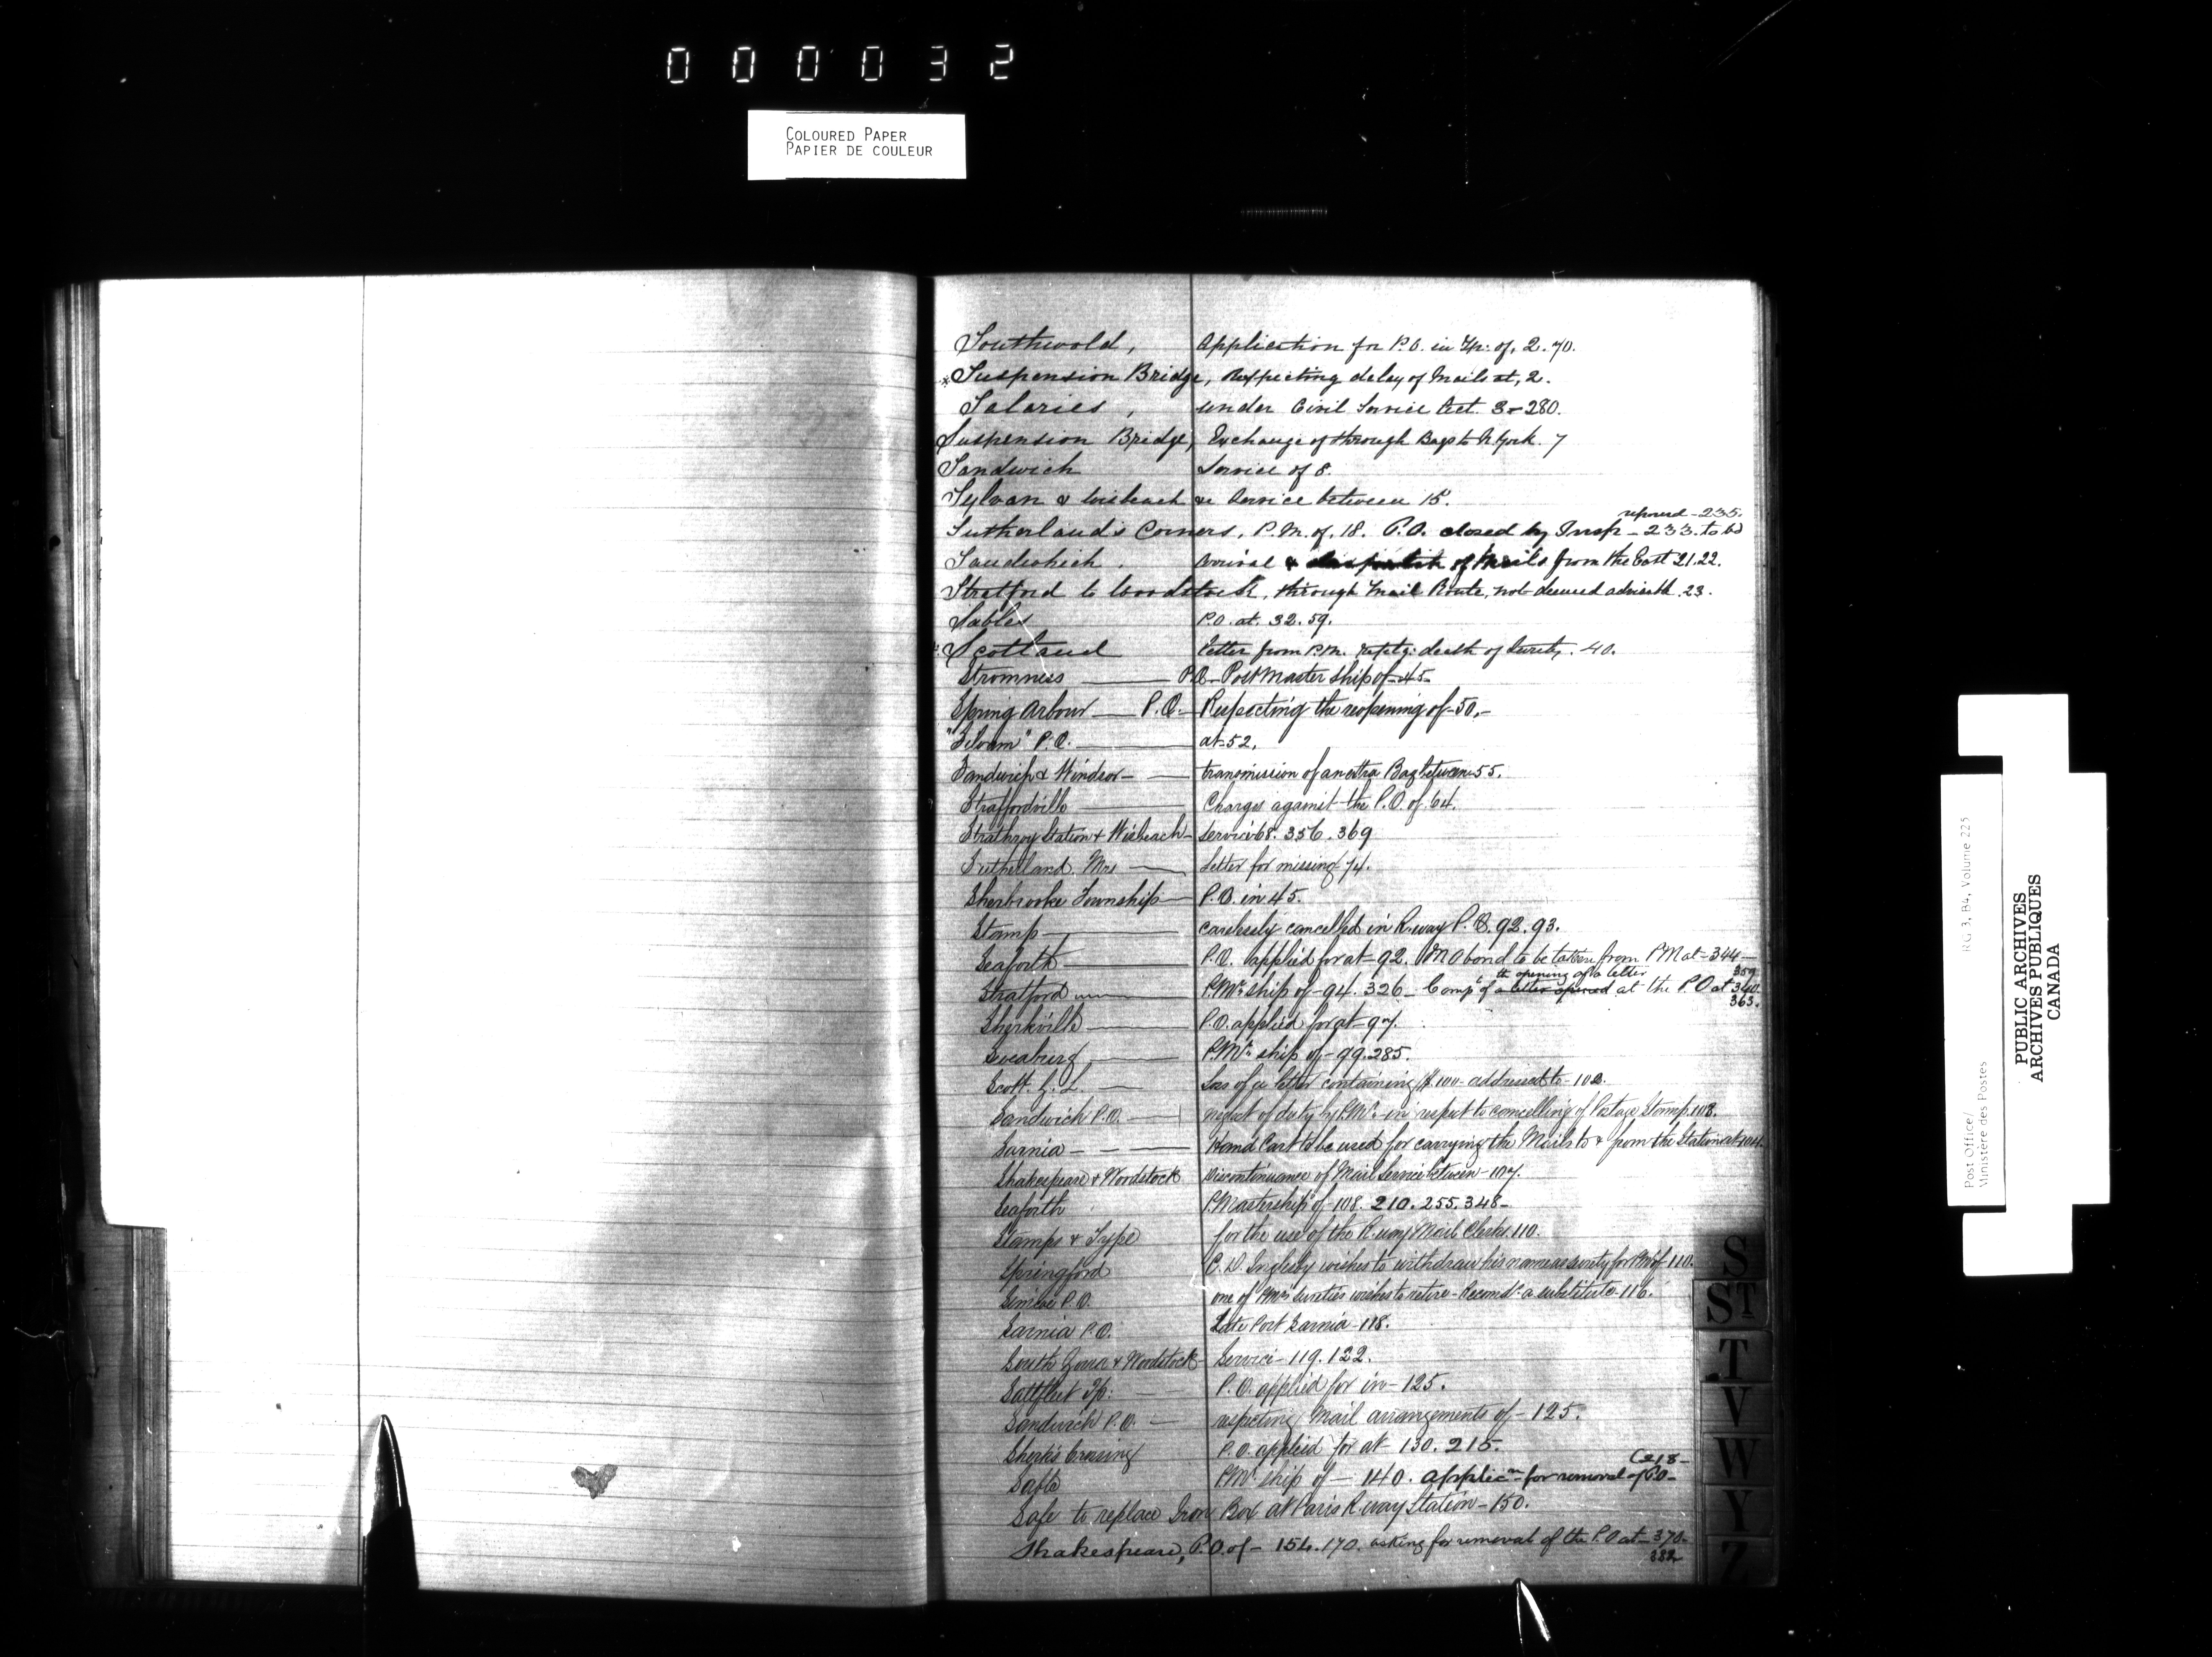 000032
COLOURED PAPER
PAPIER DE COULEUR
Southwold, Application for P.O. in Tp: of, 2. 70.
Suspension Bridge, Respecting delay of Mails at, 2.
Salaries, under Civil Service Act. 3-280.
Suspension Bridge, Exchange of through Bags to N. York. 7
Sandwich Service of 8.
Sylvan & Wisbeach Service between 15.
235.
Sutherland's Corners, P.M. of. 18. P.O. closed by Insp - 233. to be
Sandwich. Arrival & despatch of Mails from the East 21.22.
Stratford to Woodstock, through Mail Route, not deemed advisable 23.
Sables P.O. at. 32. 59.
Scotland Letter from P.M. respctg: death of Surety. 40.
Stromness P.O. Post Master ship of - 45-
Spring Arbour P.O. Respecting the reopening of - 50.-
"Siloam" P.O. at 52.
Sandwich & Windsor - transmission of an extra Bag between 55.
Straffordville Charges against the P.O. of 64.
Strathroy Station & Wisbeach - Service 68. 356. 369
Sutherland. Mrs Letter for missing 74.
Sherbrooke Township P.O. in 45.
Stamp carelessly cancelled in R.way P.O. 92. 93.
Seaforth P.O. applied for at - 92. M O bond to be taken from PM at - 344 -
the opening of a letter 359
Stratford P.Mr ship of - 94. 326 - Compt of a letter opened at the P.O at 340
363.
Sherkville P.O. applied for at - 97.
Sweaburg P.Mr ship of - 99. 285.
Scott. G. L. Loss of a letter containing $100 - addressed to - 102.
Sandwich P.O. neglect of duty by P.Mr. in respect to cancelling of Postage Stamps 108.
Sarnia Hand Cart to be used for carrying the Mails to & from the Station at 104.
Shakespeare & Woodstock Discontinuance of Mail Service between - 107.
Seaforth P.Mastership of - 108. 210. 255. 348 -
Stamps & Type for the use of the R.way Mail Clerks. 110.
Springford wishes to withdraw his name as surety for PMr of - 110.
Simcoe P.O. one of P.Mrs Sureties wishes to retire - Recomds a substitute - 116.
Sarnia P.O. Late Port Sarnia - 118.
South Zorra & Woodstock Service - 119. 122.
Saltfleet Tp: P.O. applied for in - 125.
Sandwich P.O. respecting Mail arrangements of - 125.
Sherk's Crossing P.O. applied for at - 130. 215.
P.Mr ship of - 140. applicn for removal of P.O -
Safe to replace Iron Box at Paris R.way Station - 150.
Shakespeare, P.O. of - 154. 170. asking for removal of the P.O at - 370 -
382
S
ST
T
V
W
Y
Z
Post Office/ RG 3, B4, Volume 225
Ministère des Postes
PUBLIC ARCHIVES
ARCHIVES PUBLIQUES
CANADA